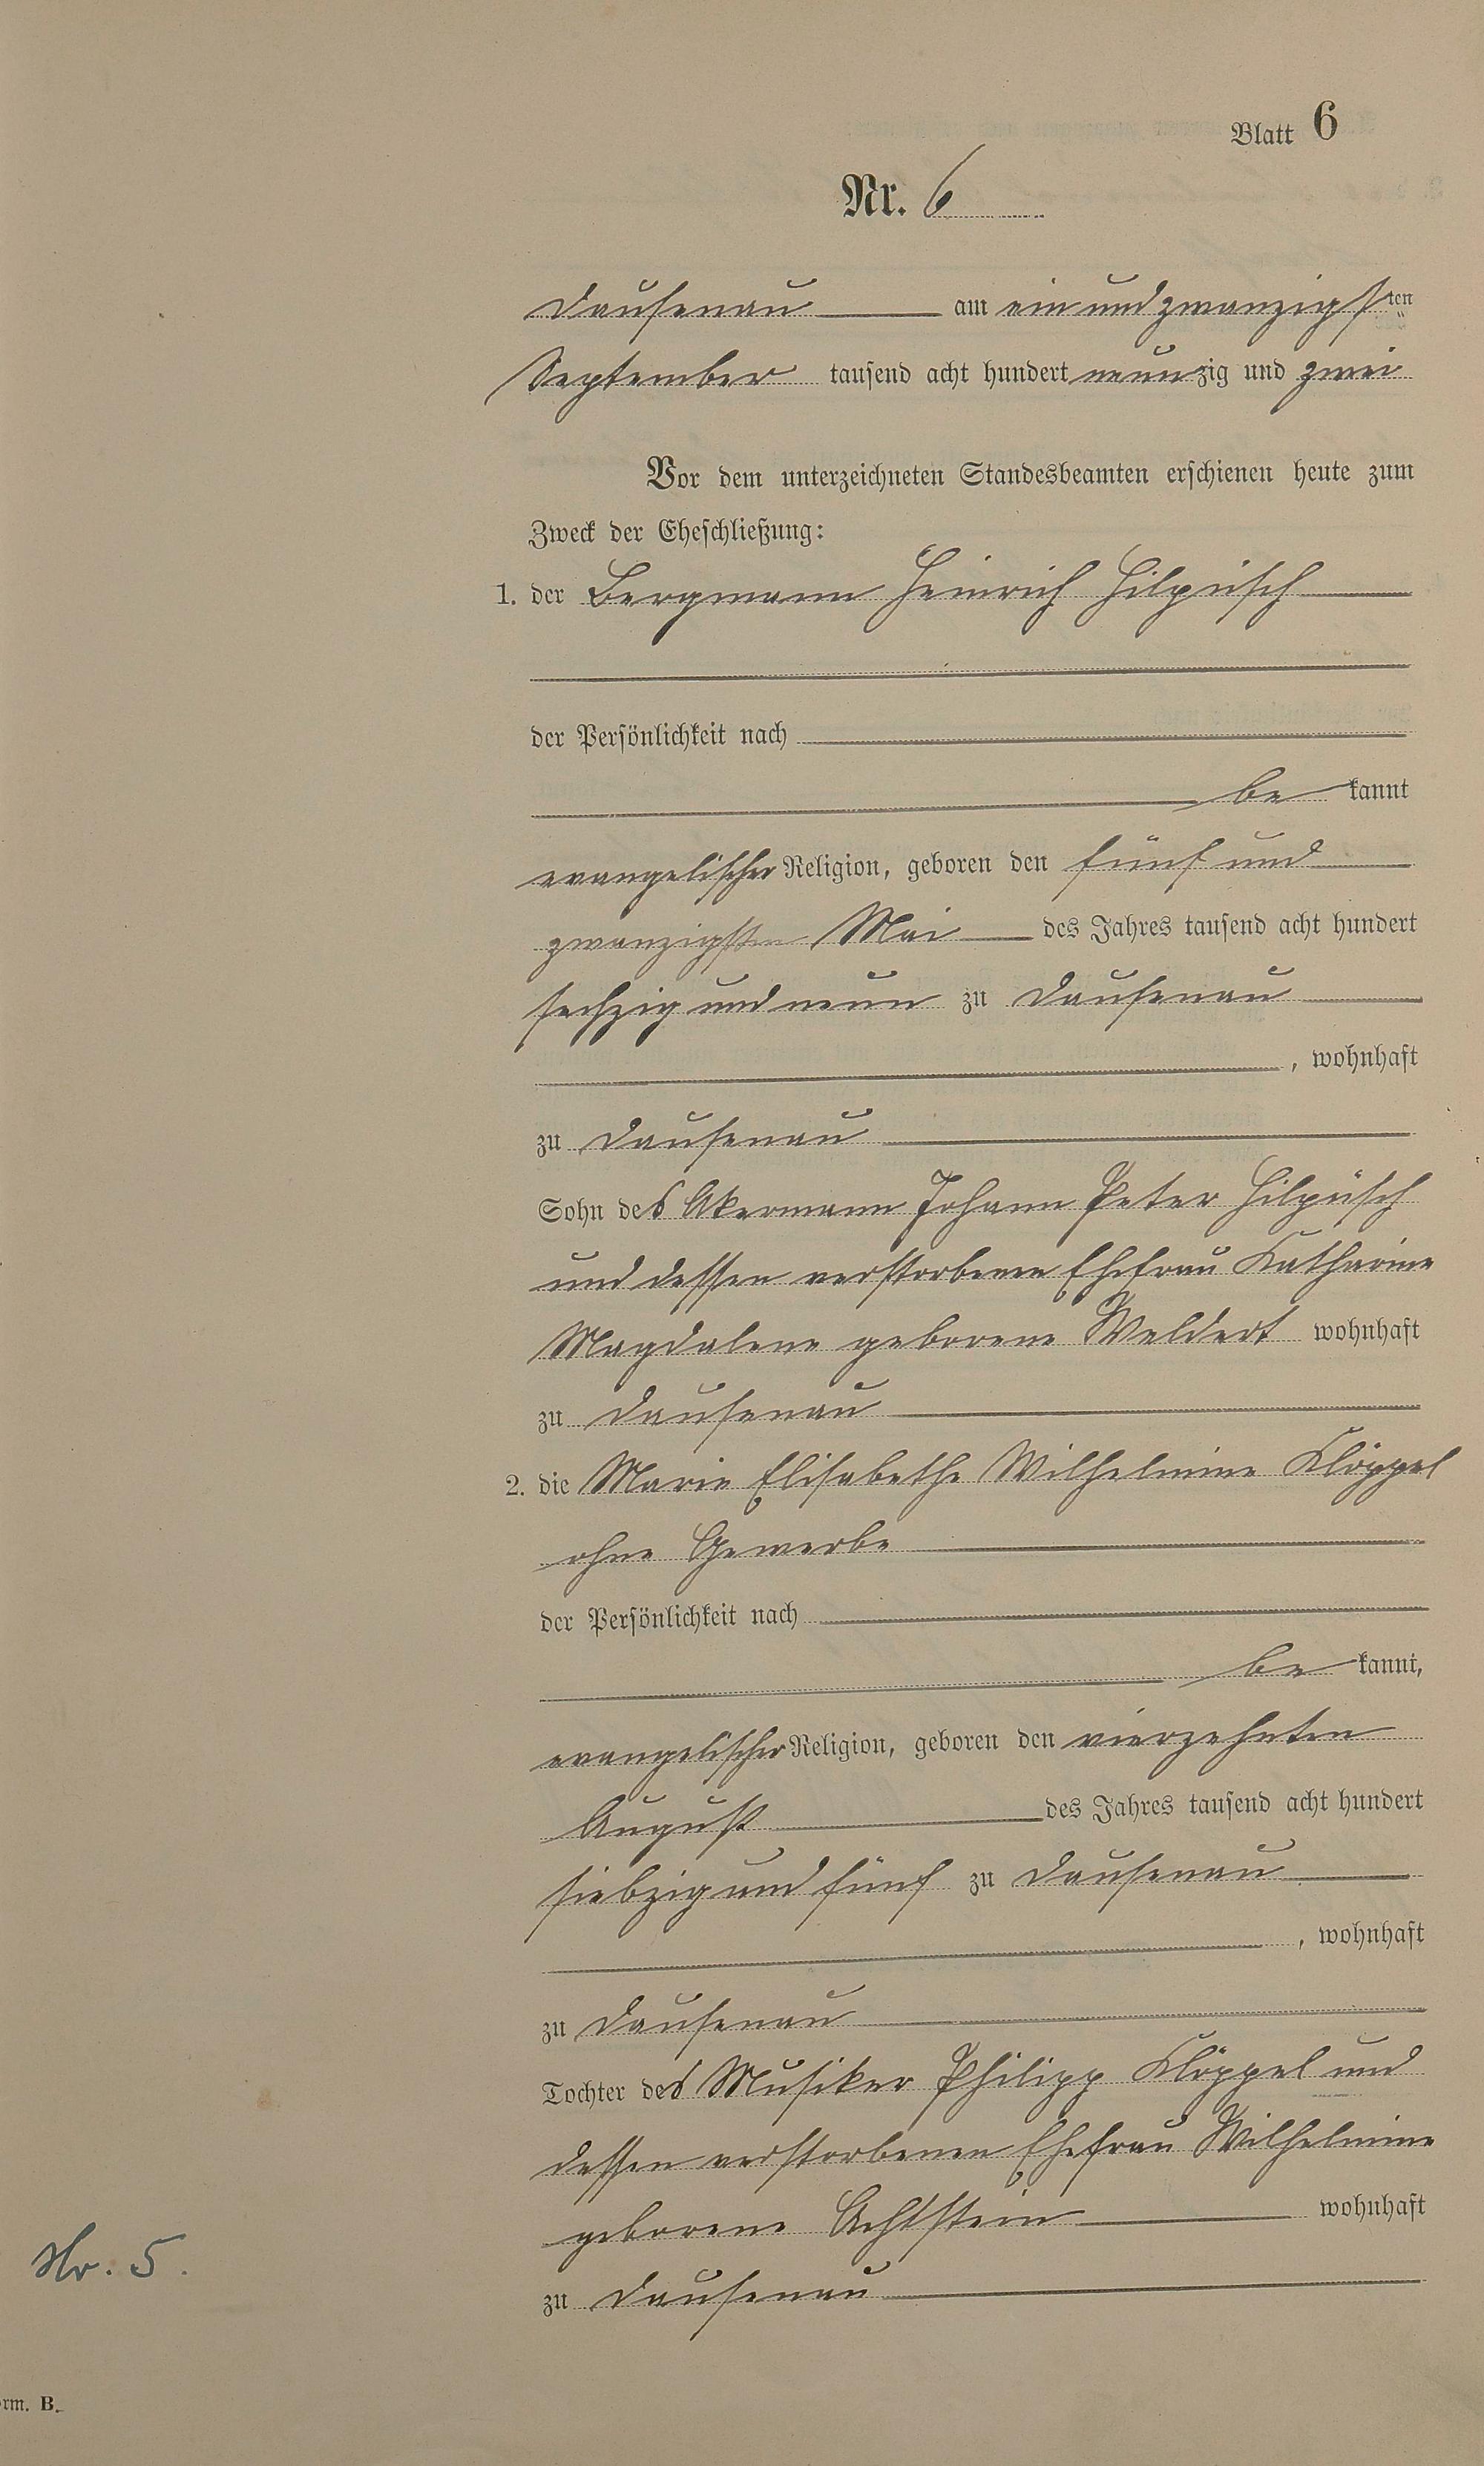 Blatt 6
Nr. 6
Dausenau am ein und zwanzigsten
September tausend acht hundert neunzig und zwei
Vor dem unterzeichneten Standesbeamten erschienen heute zum
Zweck der Eheschließung:
1. der Bergmann Heinrich Hilpüsch
der Persönlichkeit nach
be kannt
evangelischer Religion, geboren den fünf und
zwanzigsten Mai des Jahres tausend acht hundert
sechzig und neun zu Dausenau
, wohnhaft
zu Dausenau
Sohn des Akermann Johann Peter Hilpüsch
und dessen verstorbenen Ehefrau Katharine
Magdalene geborene Weldert wohnhaft
zu Dausenau
2. die Marie Elisabethe Wilhelmine Klöppel
ohne Gewerbe
der Persönlichkeit nach
be kannt,
evangelischer Religion, geboren den vierzehnten
August des Jahres tausend acht hundert
siebzig und fünf zu Dausenau
, wohnhaft
zu Dausenau
Tochter des Musiker Philipp Klöppel und
dessen verstorbenen Ehefrau Wilhelmine
geborene Achtstein wohnhaft
zu Dausenau
Nr. 5.
orm. B.